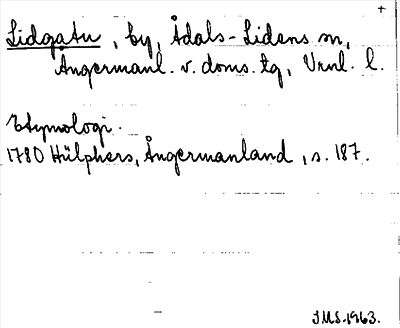 +
Lidgatu, by, Ådals-Lidens sn,
Ångermanl. v. doms. tg, Vrnl. l.
Etymologi.
1780 Hülphers, Ångermanland, s. 187.
IMS. 1963.